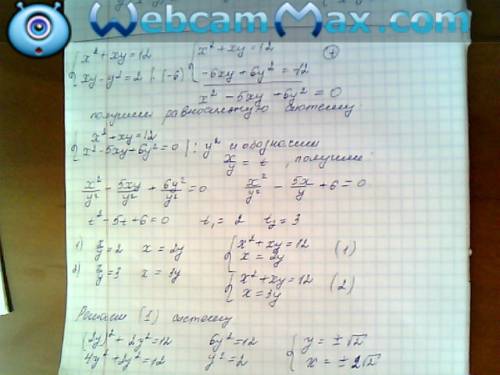 WebcamMax.com
{ x² + xy = 12    { x² + xy = 12
{ xy - y² = 2 | (-6)    { -6xy + 6y² = -12
x² - 5xy + 6y² = 0
получим равносильную систему
{ x² + xy = 12
{ x² - 5xy + 6y² = 0 | : y² и обозначим
x/y = t, получим:
x²/y² - 5xy/y² + 6y²/y² = 0    x²/y² - 5x/y + 6 = 0
t² - 5t + 6 = 0    t₁ = 2    t₂ = 3
1) x/y = 2    x = 2y    { x² + xy = 12    (1)
{ x = 2y
2) x/y = 3    x = 3y    { x² + xy = 12    (2)
{ x = 3y
Решаем (1) систему
(2y)² + 2y² = 12    6y² = 12    { y = ±√2
4y² + 2y² = 12    y² = 2    { x = ±2√2